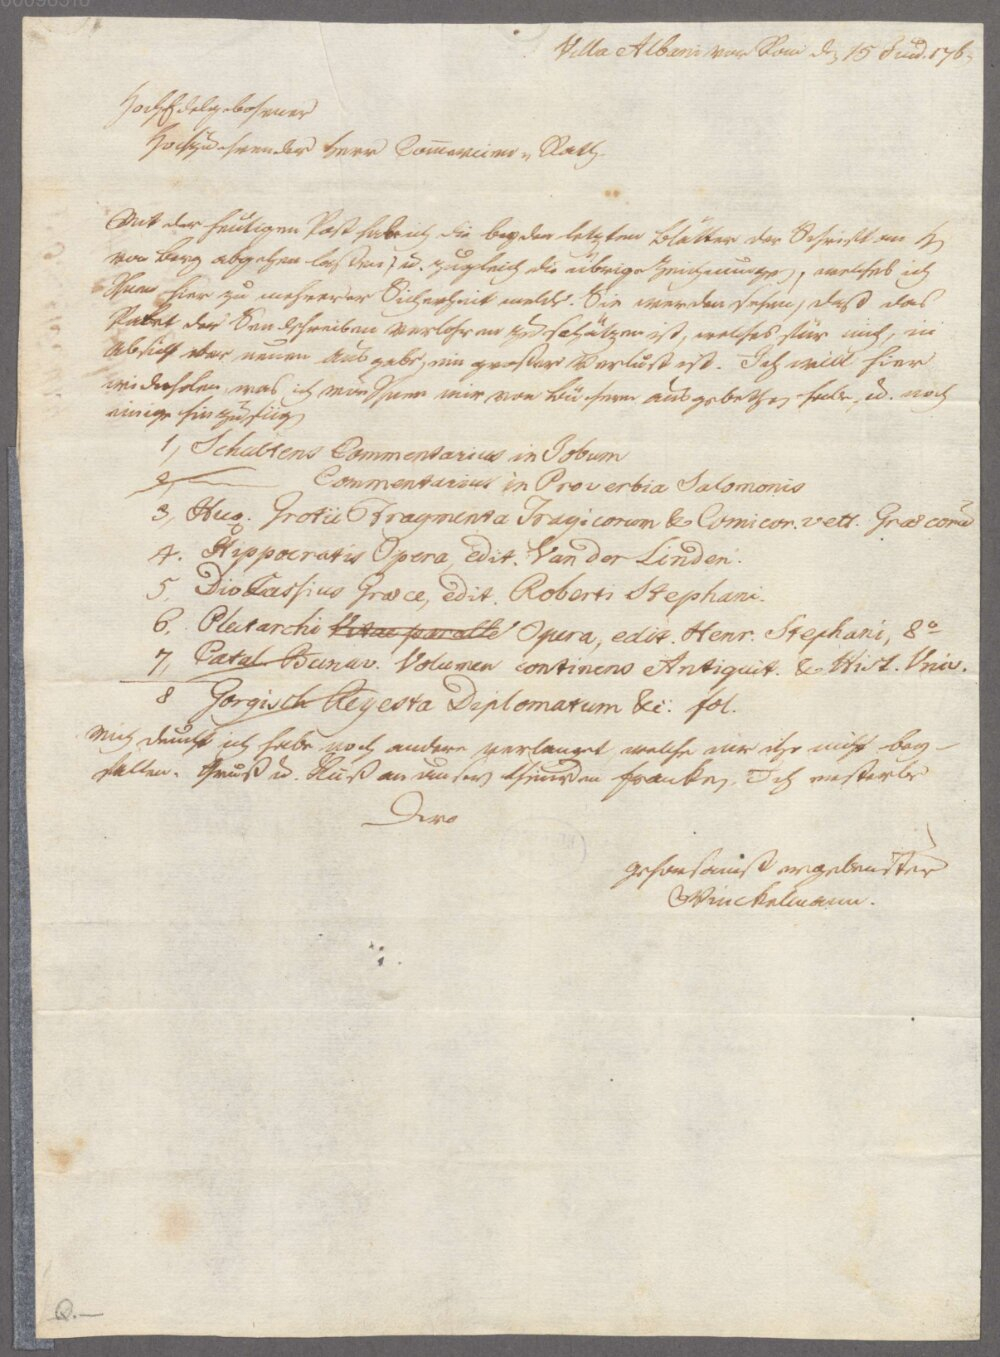 Villa Albani vor Rom den 15 Jud. 176
HochEdelgebohrner
Hochzuehrender Herr Commercien-Rath.
Mit der heutigen Post habe ich die beyden letzten Blätter der Schrift an H
von Berg abgehen lassen, u. zugleich die übrige Zeichnungen, welches ich
Ihnen hier zu mehrerer Sicherheit melde. Sie werden sehen, daß das
Paket der Sendschreiben verlohren zu schätzen ist, welches für mich, in
Absicht einer neuen Ausgabe, ein großer Verlust ist. Ich will hier
wiederholen was ich von Ihnen mir von Büchern ausgebethen habe, u. noch
einige hinzufügen
1, Schultens Commentarius in Jobum
2, ——— Commentarius in Proverbia Salomonis
3, Hug. Grotii Fragmenta Tragicorum & Comicor. vett. Græcorũ
4. Hippocratis Opera, edit. Van der Linden.
5, Dio Cassius Græce, edit. Roberti Stephani.
6. Plutarchi Vitae paralle Opera, edit. Henr. Stephani, 8°
7, Catal. Bunav. Volumen continens Antiquit. & Hist. Univ.
8 Gorgisch Regesta Diplomatum &c: fol.
Mich deucht ich habe noch andere verlanget welche mir itzo nicht bey-
fallen. Gruß u. Kuß an unsern Franken. Ich ersterbe
Dero
gehorsamst ergebenster
Winckelmann.
Q.—